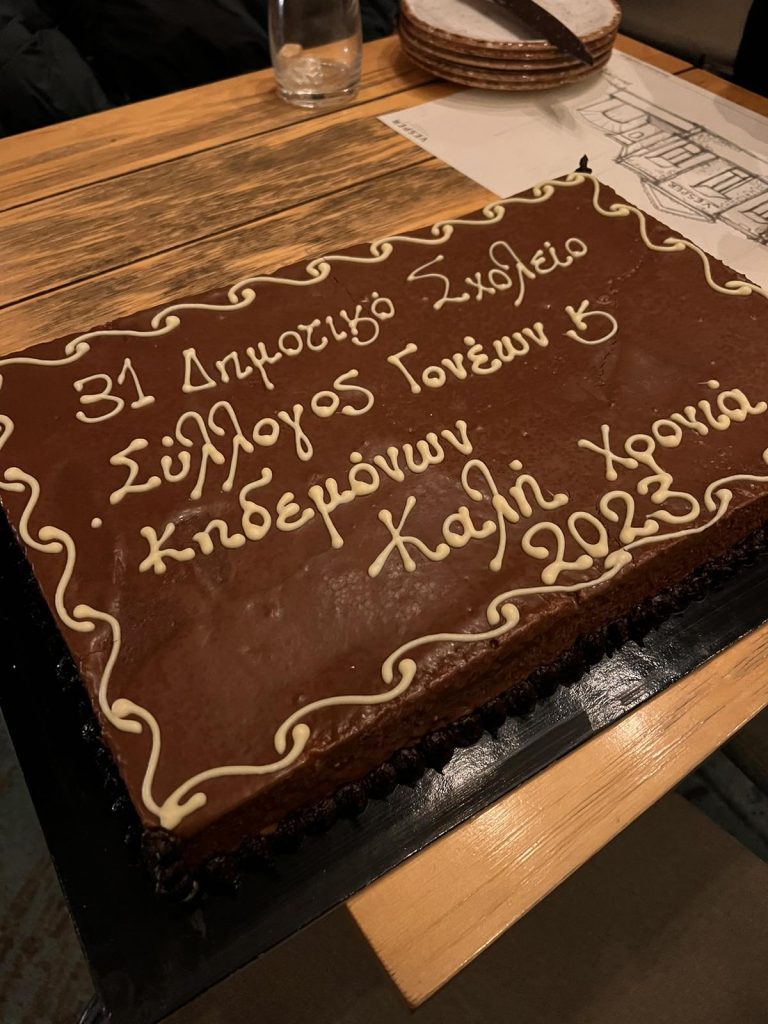 31 Δημοτικό Σχολείο
Σύλλογος Γονέων κ
κηδεμόνων
Καλή χρονιά
2023
VESPER